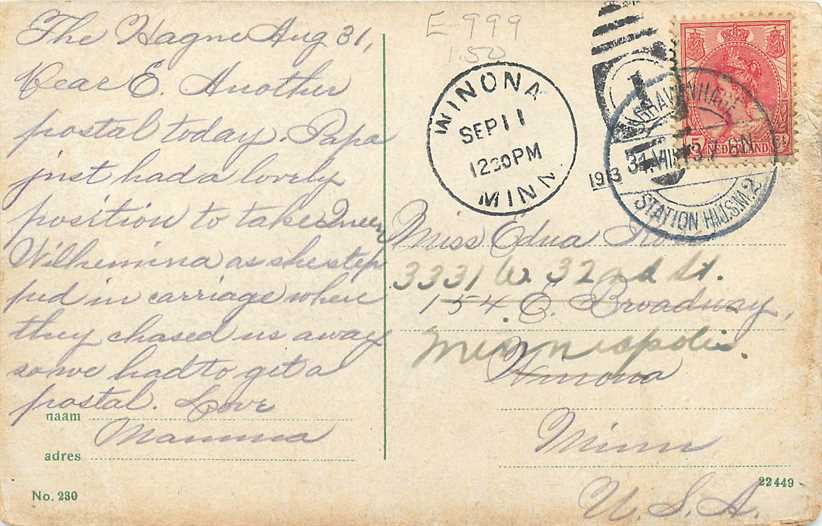 The Hague Aug 31,
Dear E. Another
postal today. Papa
just had a lovely
position to take Queen
Wilhemina as she step
ped in carriage when
they chased us away
so we had to get a
postal. Love
Mamma
naam
adres
No. 230
E-999
1.50
WINONA
SEP 11
12 30 PM
MINN
1
1913
'S GRAVENHAGE
STATION H.IJ.S.M. 2
5
NEDERLAND
Miss Edna
3331 W. 32nd St.
154 E. Broadway,
Minneapolis.
Winona
Minn
U.S.A.
22449